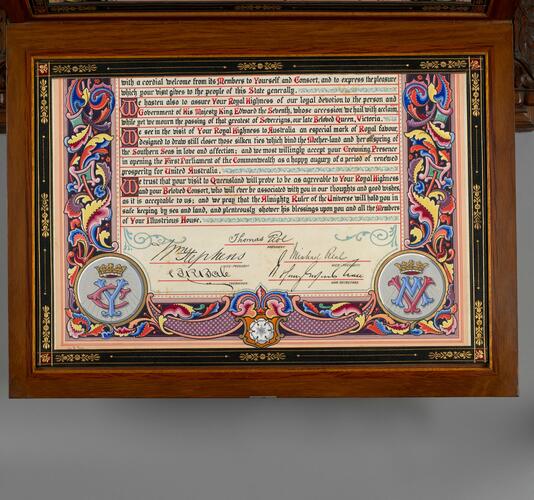 with a cordial welcome from its Members to Yourself and Consort, and to express the pleasure
which your visit gives to the people of this State generally.
We hasten also to assure Your Royal Highness of our loyal devotion to the person and
Government of His Majesty King Edward the Seventh, whose accession we hail with acclaim,
while yet we mourn the passing of that greatest of Sovereigns, our late Beloved Queen, Victoria.
We see in the visit of Your Royal Highness to Australia an especial mark of Royal favour,
designed to draw still closer those silken ties which bind the Mother-land and her offspring of
the Southern Seas in love and affection; and we most willingly accept your Crowning Presence
in opening the First Parliament of the Commonwealth as a happy augury of a period of renewed
prosperity for United Australia.
We trust that your visit to Queensland will prove to be as agreeable to Your Royal Highness
and your Beloved Consort, who will ever be associated with you in our thoughts and good wishes,
as it is acceptable to us; and we pray that the Almighty Ruler of the Universe will hold you in
safe keeping by sea and land, and plenteously shower his blessings upon you and all the Members
of Your Illustrious House.
Thomas
PRESIDENT
Wm Stephens
VICE-PRESIDENT
Michael
VICE-PRESIDENT
TREASURER
HON SECRETARY